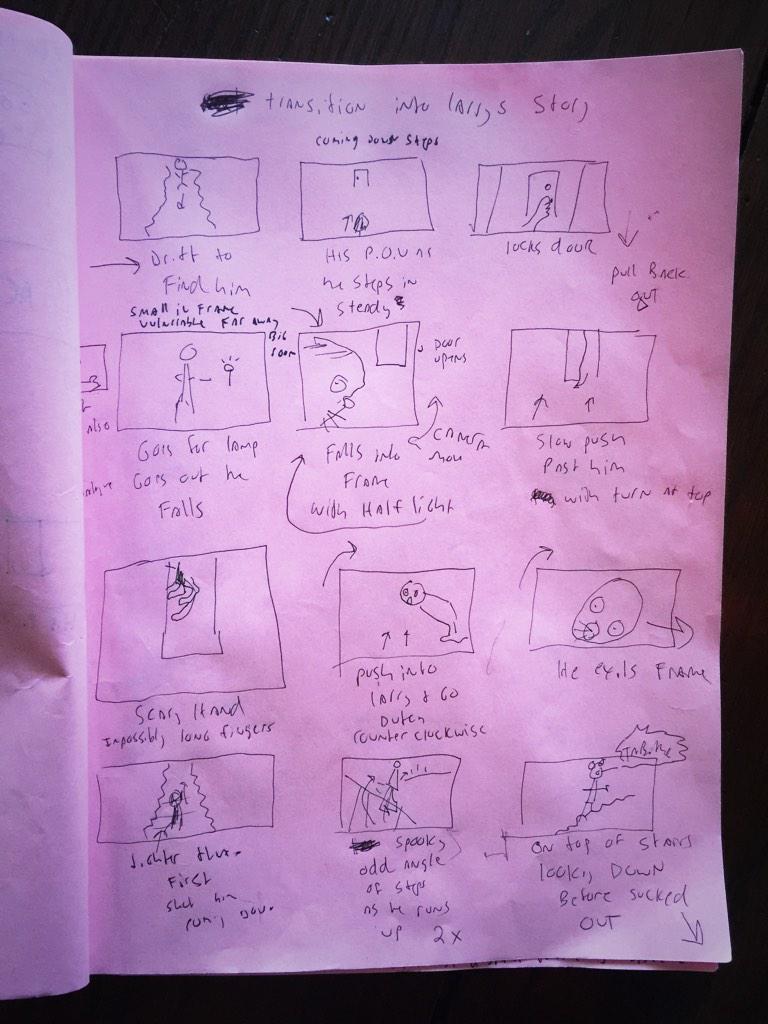 transition into larrys story
coming down steps
Drift to
Find him
His P.O.V as
he steps in
steady
locks door
pull back
out
small in frame
vulnerable far away
Big
room
Goes for lamp
Goes out he
Falls
Door
opens
Falls into
Frame
with Half light
camera
move
Slow push
Past him
with turn at top
also
Scary Hand
Impossibly long fingers
push into
larry & Go
Dutch
counter clockwise
He exits Frame
Lighter than
First
shot him
coming down
spooky
odd angle
of steps
as he runs
up 2x
on top of stairs
looking Down
Before sucked
OUT